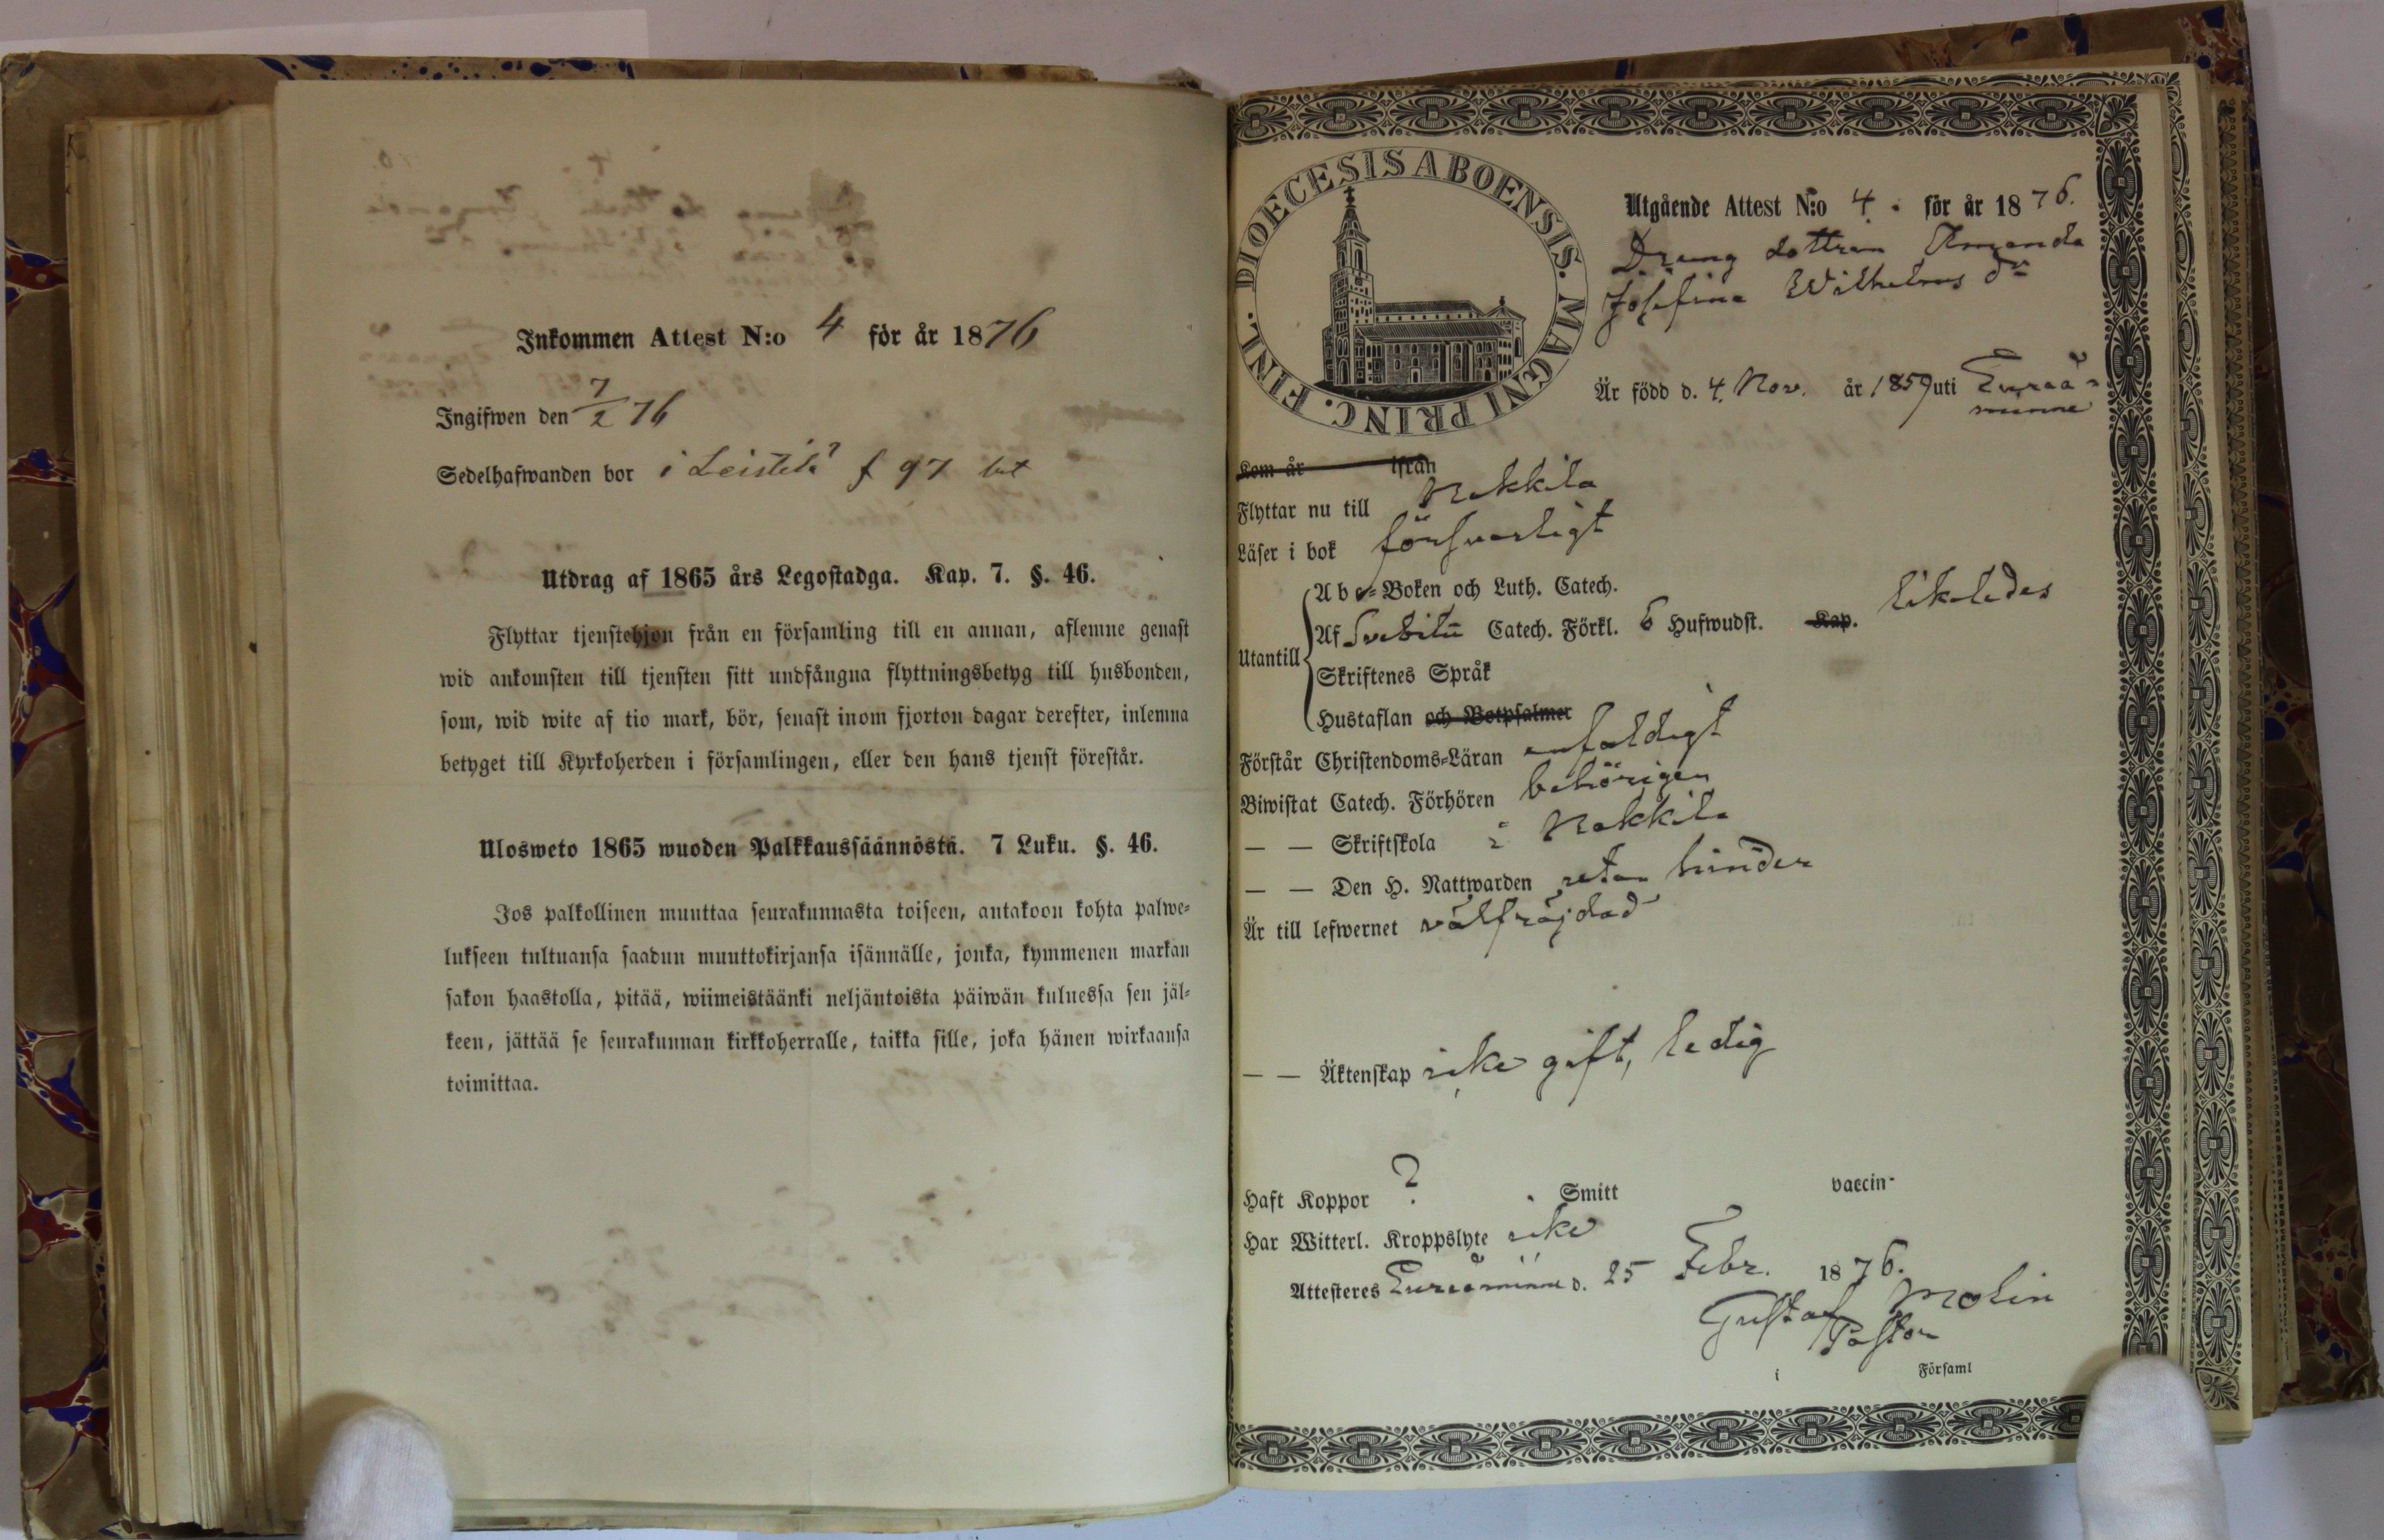 Inkommen Attest N:o 4 för år 1876
Ingifwen den 7/2 76
Sedelhafwanden bor i Leistilä? f 97 bet
Utdrag af 1865 års Legostadga. Kap. 7. §. 46.
Flyttar tjenstehjon från en församling till en annan, aflemne genast
wid ankomsten till tjensten sitt undfångna flyttningsbetyg till husbonden,
som, wid wite af tio mark, bör, senast inom fjorton dagar derefter, inlemna
betyget till Kyrkoherden i församlingen, eller den hans tjenst förestår.
Ulosweto 1865 wuoden Palkkaussäännöstä. 7 Luku. §. 46.
Jos palkollinen muuttaa seurakunnasta toiseen, antakoon kohta palwe=
lukseen tultuansa saadun muuttokirjansa isännälle, jonka, kymmenen markan
sakon haastolla, pitää, wiimeistäänki neljäntoista päiwän kuluessa sen jäl=
keen, jättää se seurakunnan kirkkoherralle, taikka sille, joka hänen wirkaansa
toimittaa.
DIOECESIS ABOENSIS. MAGNI PRINC. FINL.
Utgående Attest N:o 4. för år 1876.
Dräng dottren Amanda
Josefina Wilhelms dr
Är född d. 4. Nov. år 1859 uti Euraå=
minne
Kom år ifrån
Flyttar nu till Nakkila
Läser i bok försvarligt
Utantill
Abc=Boken och Luth. Catech.
Af Svebilii Catech. Förkl. 6 Hufwudst. Kap. likaledes
Skriftenes Språk
Hustaflan och Botpsalmer
Förstår Christendoms=Läran enfaldigt
Biwistat Catech. Förhören behörigen
— — Skriftskola i Nakkila
— — Den H. Nattwarden utan hinder
Är till lefwernet välfräjdad
— — Äktenskap icke gift, ledig
Haft Koppor ? Smitt vaccin-
Har Witterl. Kroppslyte icke
Attesteres Euraåminne d. 25 Febr. 1876.
Gustaf Molin
Pastor
i Församl